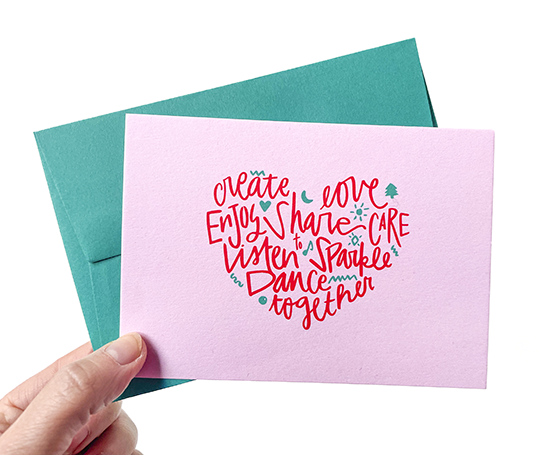 create love
Enjoy Share CARE
Listen to Sparkle
Dance
together